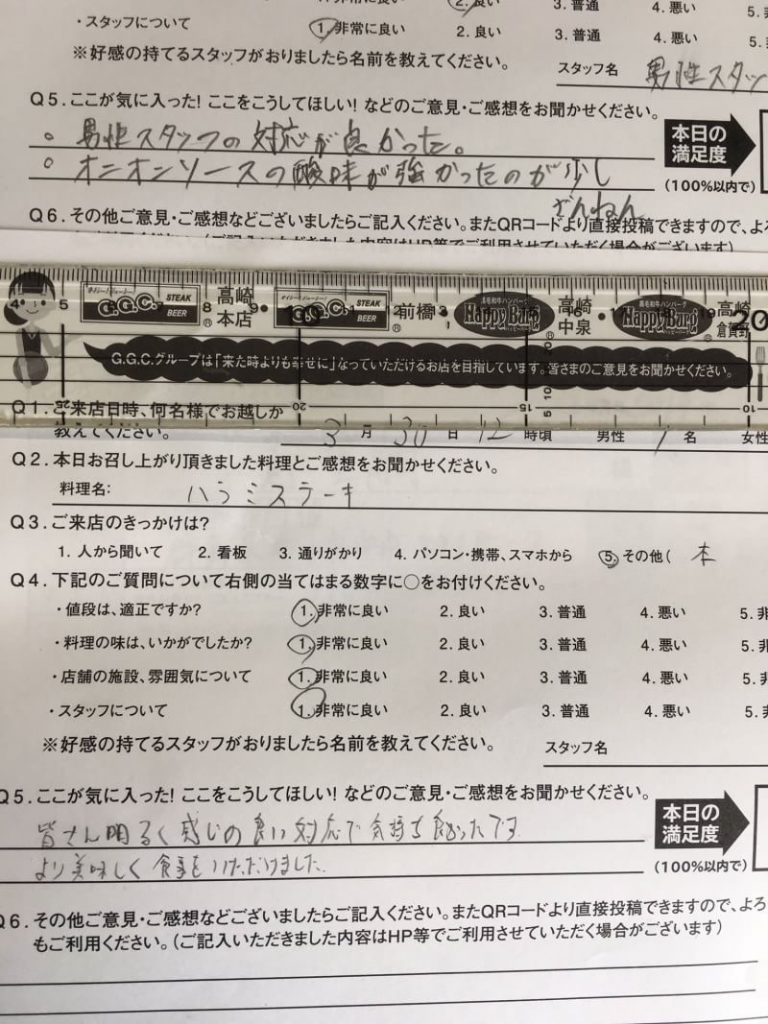 1. 非常に良い 2. 良い 3. 普通 4. 悪い 5.
・スタッフについて 1. 非常に良い 2. 良い 3. 普通 4. 悪い 5. 非
※好感の持てるスタッフがおりましたら名前を教えてください。 スタッフ名 男性スタッ
Q5. ここが気に入った! ここをこうしてほしい! などのご意見・ご感想をお聞かせください。
○ 男性スタッフの対応が良かった。
○ オニオンソースの酸味が強かったのが少し
ざんねん
本日の
満足度
(100%以内で)
Q6. その他ご意見・ご感想などございましたらご記入ください。またQRコードより直接投稿できますので、よろ
(ご記入いただきました内容はHP等でご利用させていただく場合がございます)
G.G.C. STEAK BEER 高崎本店 G.G.C. STEAK BEER 前橋 黒毛和牛ハンバーグ Happy Burg 高崎中泉 黒毛和牛ハンバーグ Happy Burg 高崎倉賀野
G.G.C.グループは「来た時よりも幸せに」なっていただけるお店を目指しています。皆さまのご意見をお聞かせください。
Q1. ご来店日時、何名様でお越しか
教えてください。 3 月 30 日 12 時頃 男性 1 名 女性
Q2. 本日お召し上がり頂きました料理とご感想をお聞かせください。
料理名: ハラミステーキ
Q3. ご来店のきっかけは?
1. 人から聞いて 2. 看板 3. 通りがかり 4. パソコン・携帯、スマホから 5. その他( 本
Q4. 下記のご質問について右側の当てはまる数字に○をお付けください。
・値段は、適正ですか? 1. 非常に良い 2. 良い 3. 普通 4. 悪い 5. 非
・料理の味は、いかがでしたか? 1. 非常に良い 2. 良い 3. 普通 4. 悪い 5. 非
・店舗の施設、雰囲気について 1. 非常に良い 2. 良い 3. 普通 4. 悪い 5. 非
・スタッフについて 1. 非常に良い 2. 良い 3. 普通 4. 悪い 5. 非
※好感の持てるスタッフがおりましたら名前を教えてください。 スタッフ名
Q5. ここが気に入った! ここをこうしてほしい! などのご意見・ご感想をお聞かせください。
皆さん明るく感じの良い対応で気持ち良かったです
より美味しく食事をいただけました。
本日の
満足度
(100%以内で)
Q6. その他ご意見・ご感想などございましたらご記入ください。またQRコードより直接投稿できますので、よろ
もご利用ください。(ご記入いただきました内容はHP等でご利用させていただく場合がございます)